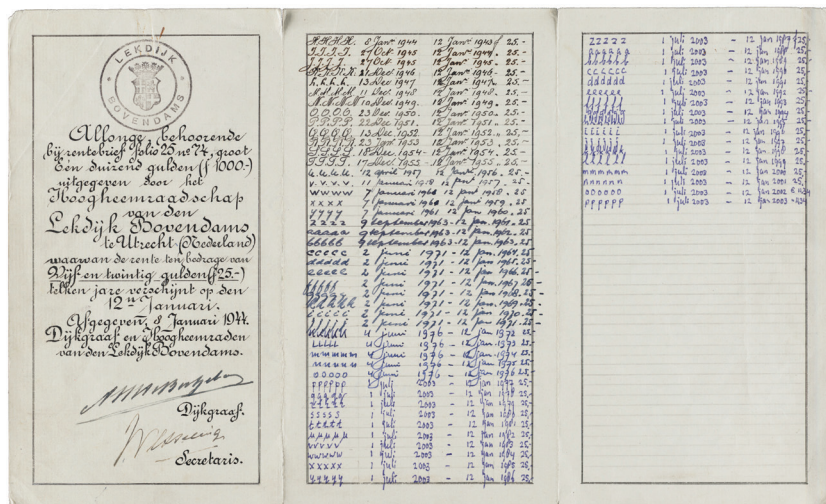 LEKDIJK
BOVENDAMS
Allonge, behoorende
bij rentebrief folio 25 no 74, groot
Een duizend gulden (ƒ 1000.-)
uitgegeven door het
Hoogheemraadschap
van den
Lekdijk Bovendams
te Utrecht (Nederland)
waarvan de rente ten bedrage van
Vijf en twintig gulden (ƒ 25.-)
telken jare verschijnt op den
12n Januari.
Afgegeven, 8 Januari 1944.
Dijkgraaf en Hoogheemraden
van den Lekdijk Bovendams.
Dijkgraaf.
Secretaris.
H.H.H.H. 8 Janr 1944 12 Janr 1943 ƒ 25.-
I.I.I.I. 27 Oct 1945 12 Janr 1944. 25.-
J.J.J.J. 27 Oct 1945 12 Janr 1945. 25.-
12 Janr 1946. 25.-
12 Janr 1947. 25.-
11 Dec 1948 12 Janr 1948 25.-
1949. 12 Janr 1949. 25.-
O.O.O.O. 23 Dec. 1950. 12 Janr 1950. 25.-
P.P.P.P. 22 Dec 1951. 12 Janr 1951. 25.-
Q.Q.Q.Q. 13 Dec. 1952. 12 Jan. 1952. 25.-
R.R.R.R. 23 Jan 1953 12 Jan 1953. 25.-
S.S.S.S. 18 Dec. 1954 - 12 Jan 1954. 25.-
T.T.T.T. 12 Jan 1955. 25.-
u.u.u.u. 12 april 1957 12 Jan 1956. 25.-
v.v.v.v. 11 januari 1958 12 jan 1957. 25.-
wwww 7 januari 1960 12 jan 1958. 25.-
xxxx 7 januari 1960 12 jan 1959. 25.-
yyyy 7 januari 1961 12 jan 1960. 25.-
zzzz 9 september 1963 - 12 jan. 1961. 25.-
aaaaa 9 september 1963 - 12 jan. 1962. 25.-
bbbbb 9 september 1963 - 12 jan. 1963. 25.-
ccccc 2 juni 1971 - 12 jan. 1964. 25-
ddddd 2 juni 1971 - 12 jan. 1965. 25-
eeeee 2 juni 1971 - 12 jan. 1966. 25-
fffff 2 juni 1971 - 12 jan. 1967. 25-
2 juni 1971 - 12 jan 1968. 25-
2 juni 1971 - 12 jan. 1969. 25-
iiiii 2 juni 1971 - 12 jan. 1970. 25-
jjjjj 2 juni 1971 - 12 jan 1971. 25-
kkkkk 4 juni 1976 - 12 jan 1972 25.-
lllll 4 juni 1976 - 12 jan 1973 25.-
mmmmm 4 juni 1976 - 12 jan 1974 25.-
nnnnn 4 juni 1976 - 12 jan 1975 25.-
ooooo 4 juni 1976 - 12 jan 1976 25.-
ppppp 1 juli 2003 - 12 jan 1977 25,-
qqqqq 1 juli 2003 - 12 jan 1978 25,-
rrrrr 1 juli 2003 - 12 jan 1979 25,-
sssss 1 juli 2003 - 12 jan 1980 25,-
ttttt 1 juli 2003 - 12 jan 1981 25,-
uuuuu 1 juli 2003 - 12 jan 1982 25,-
vvvvv 1 juli 2003 - 12 jan 1983 25,-
wwwww 1 juli 2003 - 12 jan 1984 25,-
xxxxx 1 juli 2003 - 12 jan 1985 25,-
yyyyy 1 juli 2003 - 12 jan 1986 25,-
zzzzz 1 juli 2003 - 12 jan 1987 ƒ 25,-
aaaaaa 1 juli 2003 - 12 jan 1988 25,-
bbbbbb 1 juli 2003 - 12 jan 1989 25,-
cccccc 1 juli 2003 - 12 jan 1990 25,-
dddddd 1 juli 2003 - 12 jan 1991 25,-
eeeeee 1 juli 2003 - 12 jan 1992 25,-
ffffff 1 juli 2003 - 12 jan 1993 25,-
1 juli 2003 - 12 jan 1994 25,-
1 juli 2003 - 12 jan 1995 25,-
iiiiii 1 juli 2003 - 12 jan 1996 25,-
1 juli 2003 - 12 jan 1997 25,-
1 juli 2003 - 12 jan 1998 25,-
1 juli 2003 - 12 jan 1999 25,-
mmmmmm 1 juli 2003 - 12 jan 2000 25,-
nnnnnn 1 juli 2003 - 12 jan 2001 25,-
oooooo 1 juli 2003 - 12 jan 2002 € 11,34
pppppp 1 juli 2003 - 12 jan 2003 - 11,34